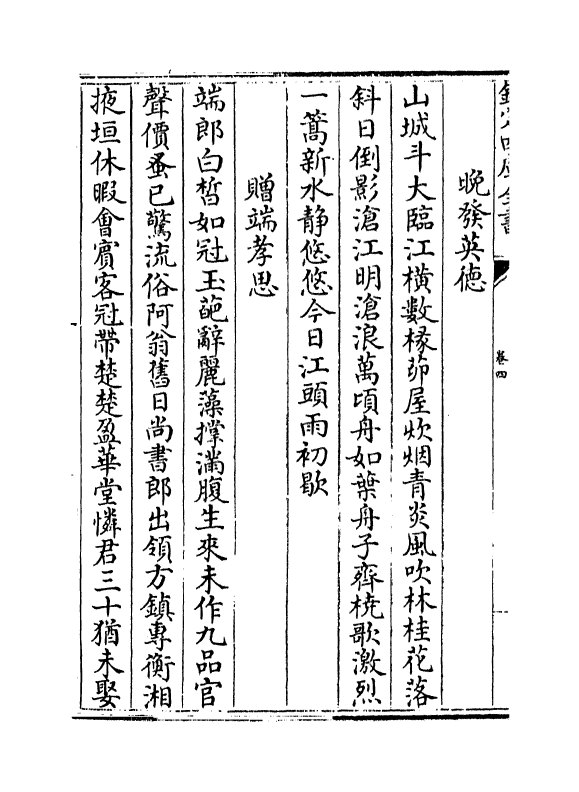 欽定四庫全書
卷四
晚發英德
山城斗大臨江橫數椽茆屋炊烟青炎風吹林桂花落
斜日倒影滄江明滄浪萬頃舟如葉舟子齊橈歌激烈
一篙新水靜悠悠今日江頭雨初歇
贈端孝思
端郎白皙如冠玉葩辭麗藻撑滿腹生來未作九品官
聲價蚤已驚流俗阿翁舊日尚書郎出領方鎮專衡湘
掖垣休暇會賓客冠帶楚楚盈華堂憐君三十猶未娶